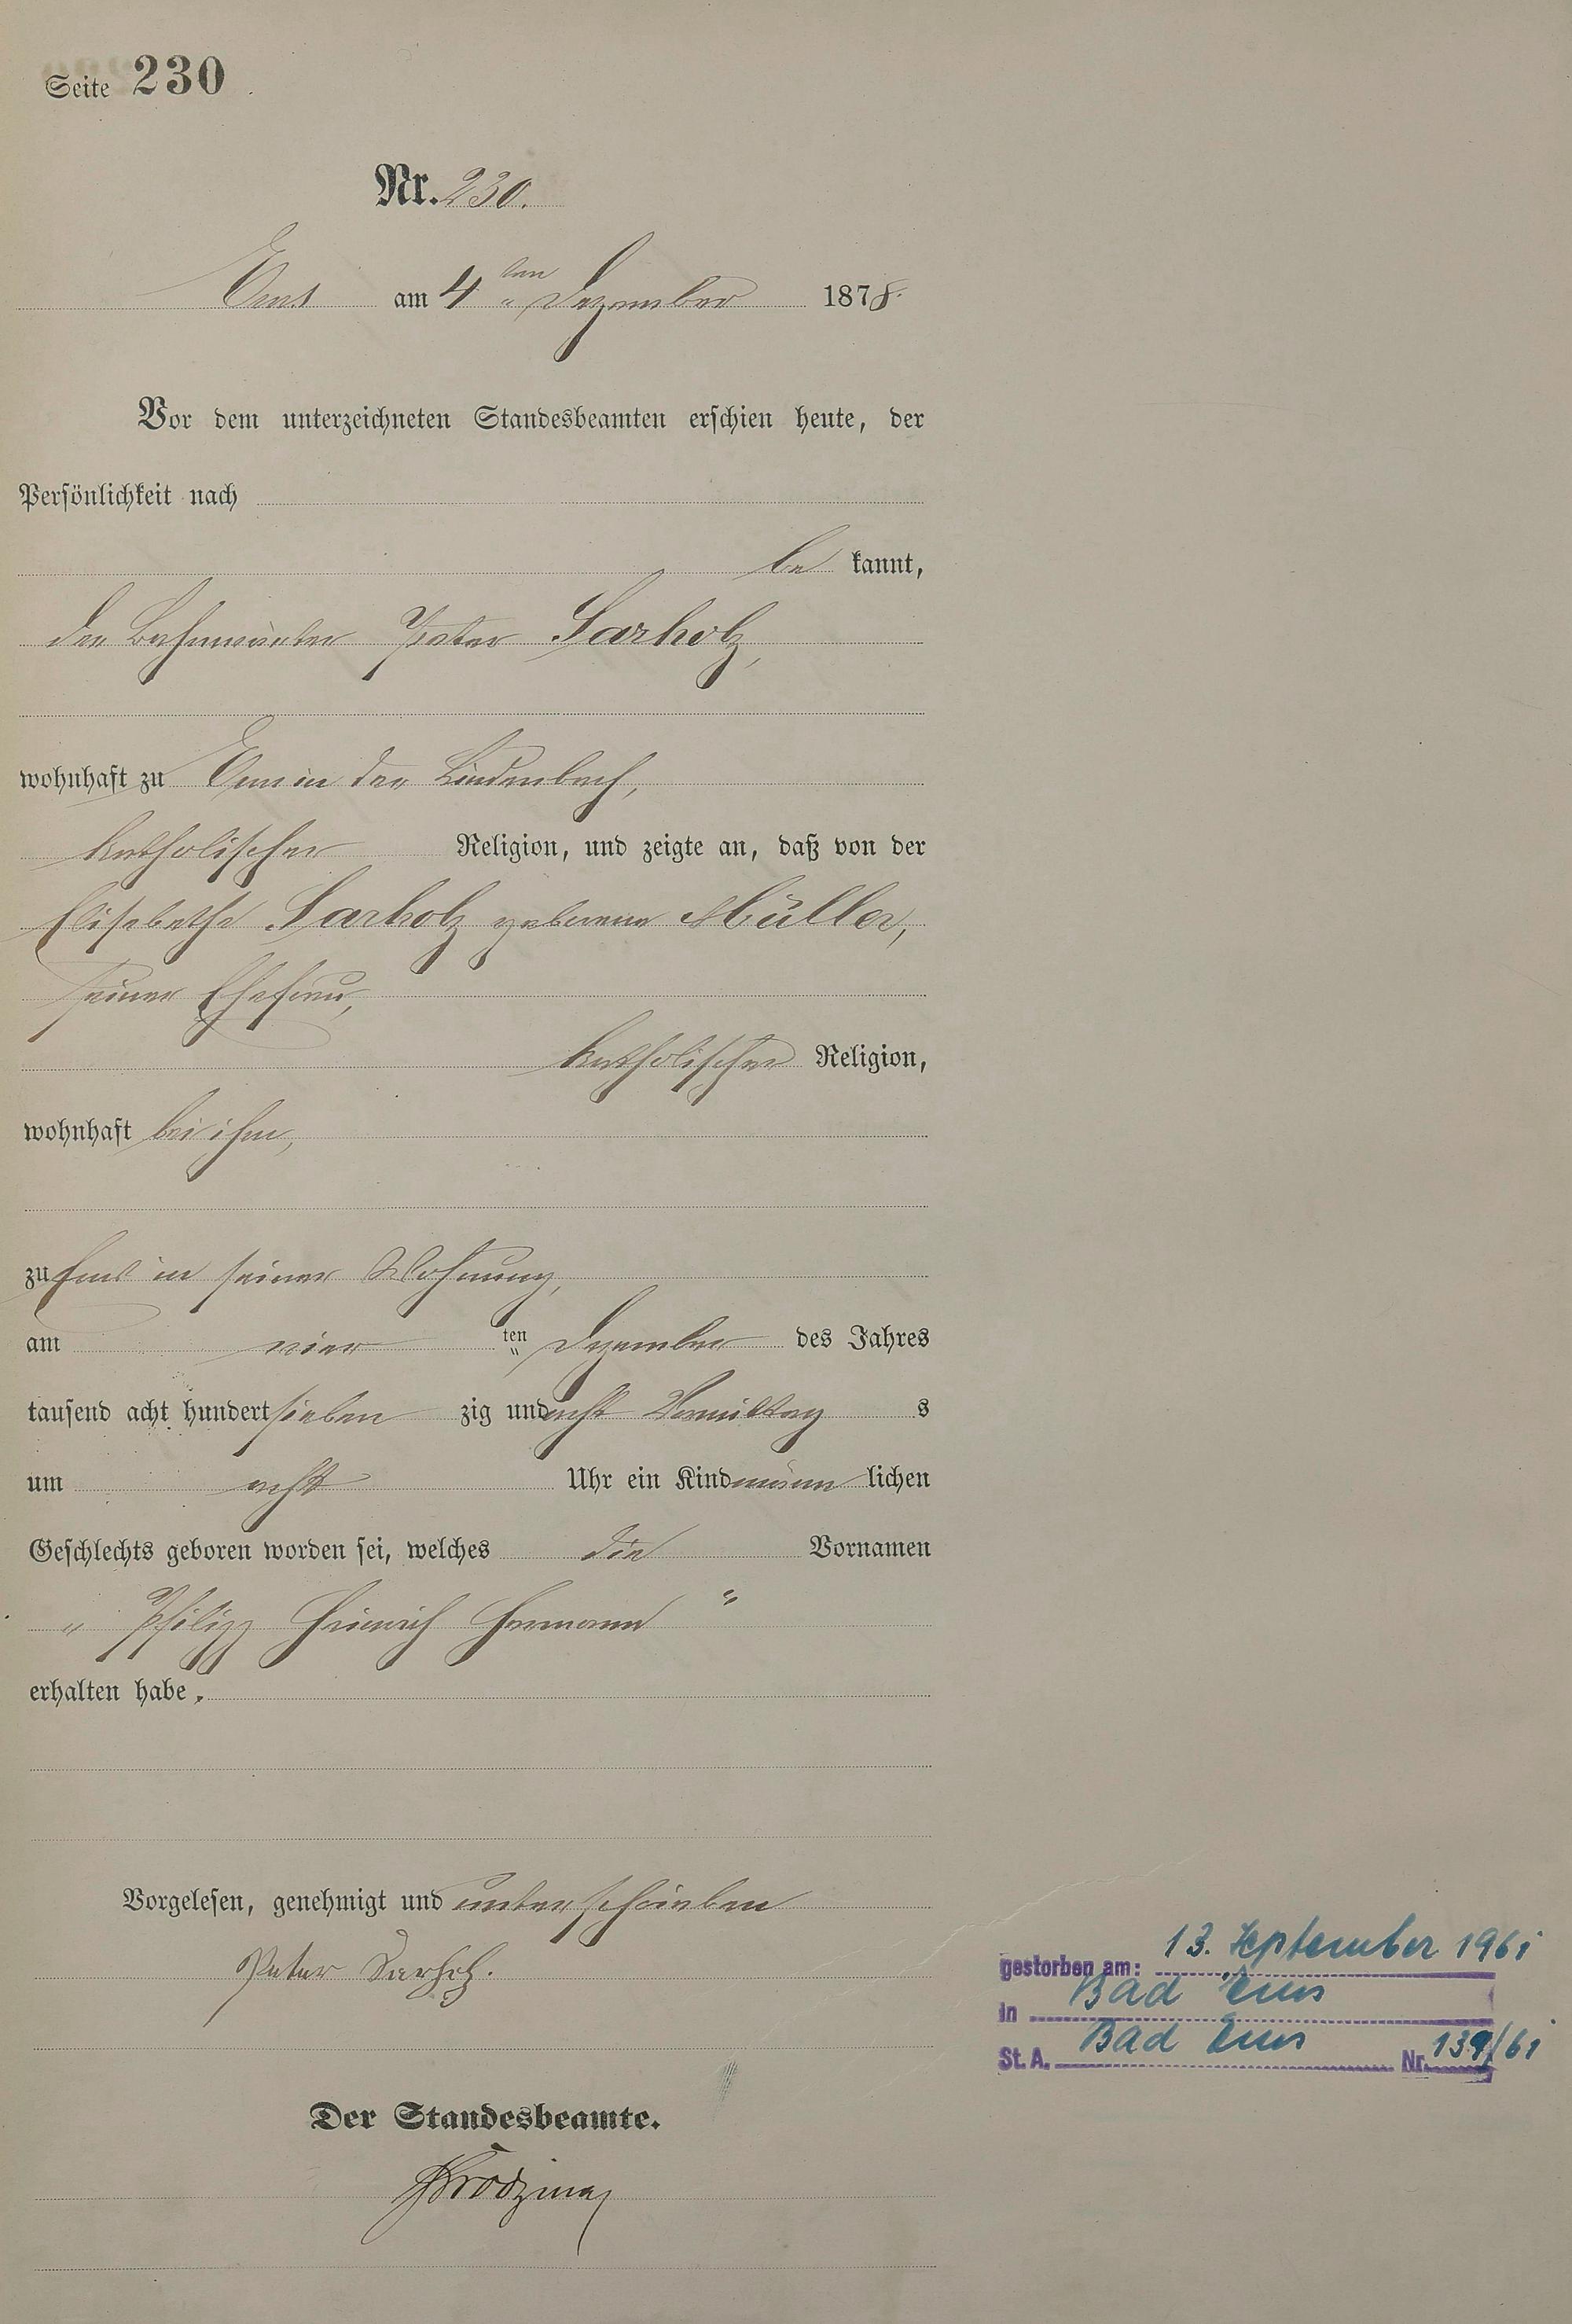 Seite 230
Nr. 230.
Ems am 4ten Dezember 1878.
Vor dem unterzeichneten Standesbeamten erschien heute, der
Persönlichkeit nach
be kannt,
der Bahnwärter Peter Sarholz,
wohnhaft zu Ems in der Lindenbach,
katholischer Religion, und zeigte an, daß von der
Elisabethe Sarholz geborene Müller,
seiner Ehefrau,
katholischer Religion,
wohnhaft bei ihm,
zu Ems in seiner Wohnung,
am vier ten Dezember des Jahres
tausend acht hundert sieben zig und acht Vormittag s
um acht Uhr ein Kind männ lichen
Geschlechts geboren worden sei, welches die Vornamen
" Philipp Heinrich Hermann "
erhalten habe.
Vorgelesen, genehmigt und unterschrieben
Peter Sarholz.
Der Standesbeamte.
gestorben am: 13. September 1961
in Bad Ems
St. A. Bad Ems Nr. 139/61